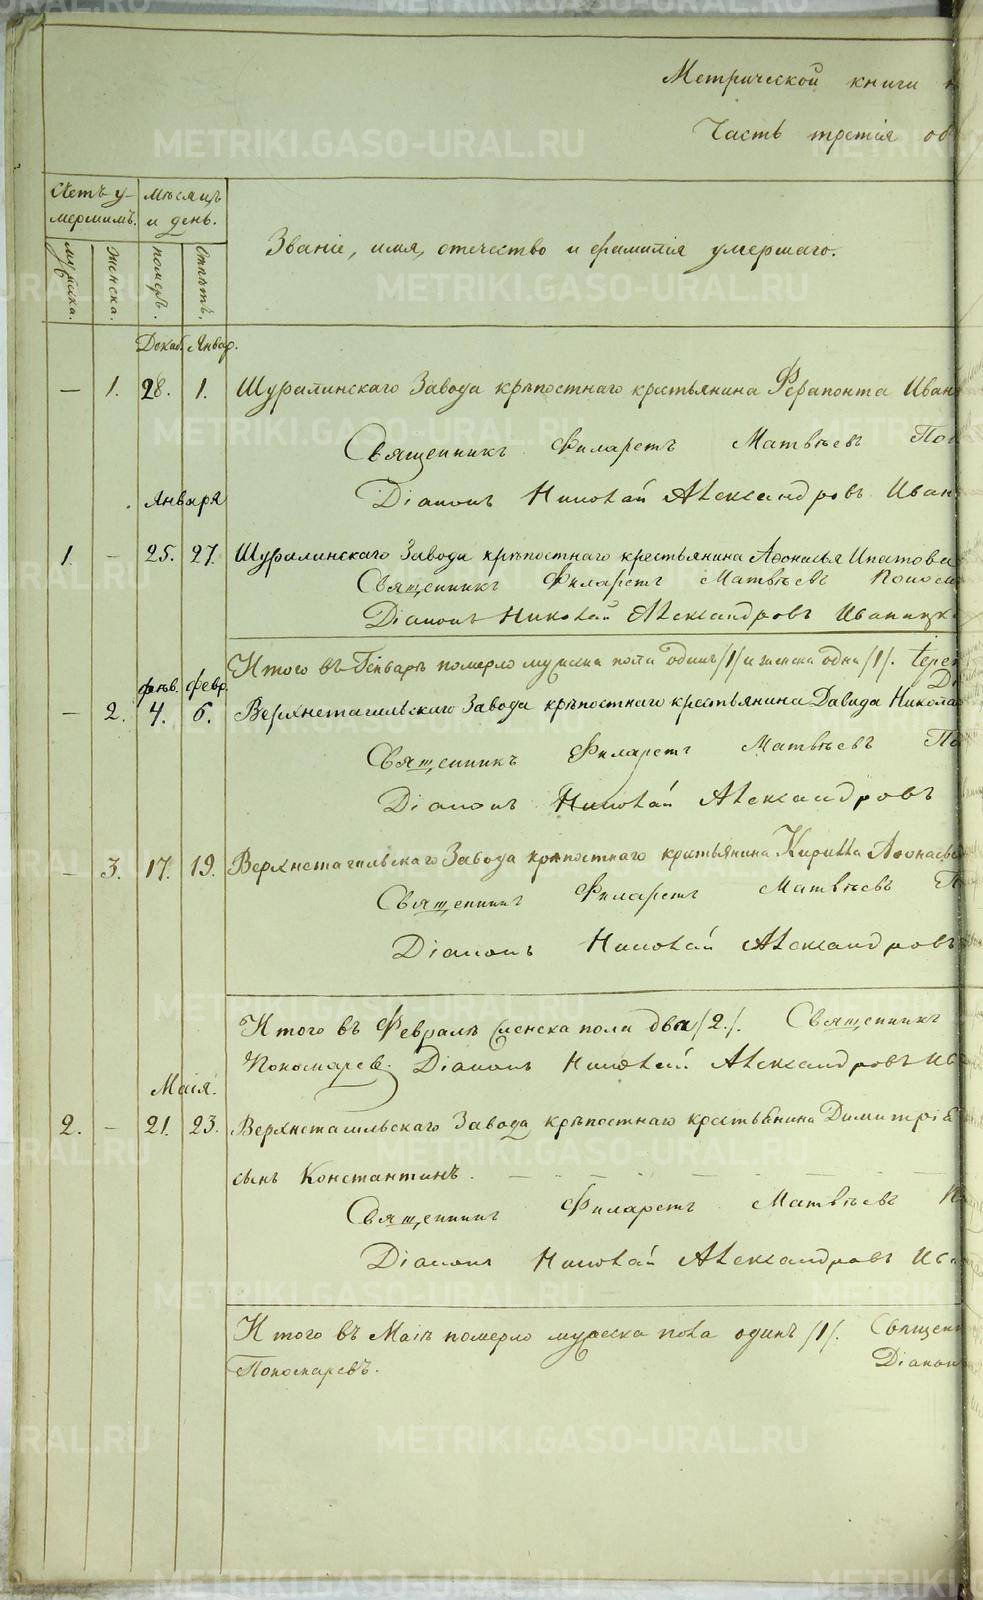 Метрической книги
Часть третія об
Счетъ у-
мершимъ.
Мѣсяцъ
и день.
мужска.
женска.
померъ.
отпѣтъ.
Званіе, имя, отечество и фамилія умершаго.
Декаб. Январ.
— 1. 28. 1. Шуралинскаго Завода крѣпостнаго крестьянина Ферапонта Иван
Священникъ Филаретъ Матвѣевъ Пон
Діаконъ Николай Александровъ Иван
Января
1. — 25. 27. Шуралинскаго Завода крѣпостнаго крестьянина Афонасья Ипатова
Священникъ Филаретъ Матвѣевъ Поном
Діаконъ Николай Александровъ Иваницк
Итого въ Генварѣ померло мужска пола одинъ /1/ и женска одна /1/.
Ді
февр. февр.
— 2. 4. 6. Верхнетагильскаго Завода крѣпостнаго крестьянина Давида Никола
Священникъ Филаретъ Матвѣевъ По
Діаконъ Николай Александровъ
— 3. 17. 19. Верхнетагильскаго Завода крѣпостнаго кртьянина Кирилла Афонасьев
Священникъ Филаретъ Матвѣевъ П
Діаконъ Николай Александровъ
Итого въ Февралѣ женска пола два /2./. Священникъ
Пономаревъ. Діаконъ Николай Александровъ Ив
Маія.
2. — 21. 23. Верхнетагильскаго Завода крѣпостнаго крестьянина Димитрія
сынъ Константинъ. —
Священникъ Филаретъ Матвѣевъ П
Діаконъ Николай Александровъ Ива
Итого въ Маіѣ померло мужска пола одинъ /1/. Священн
Пономаревъ. Діакон
METRIKI.GASO-URAL.RU